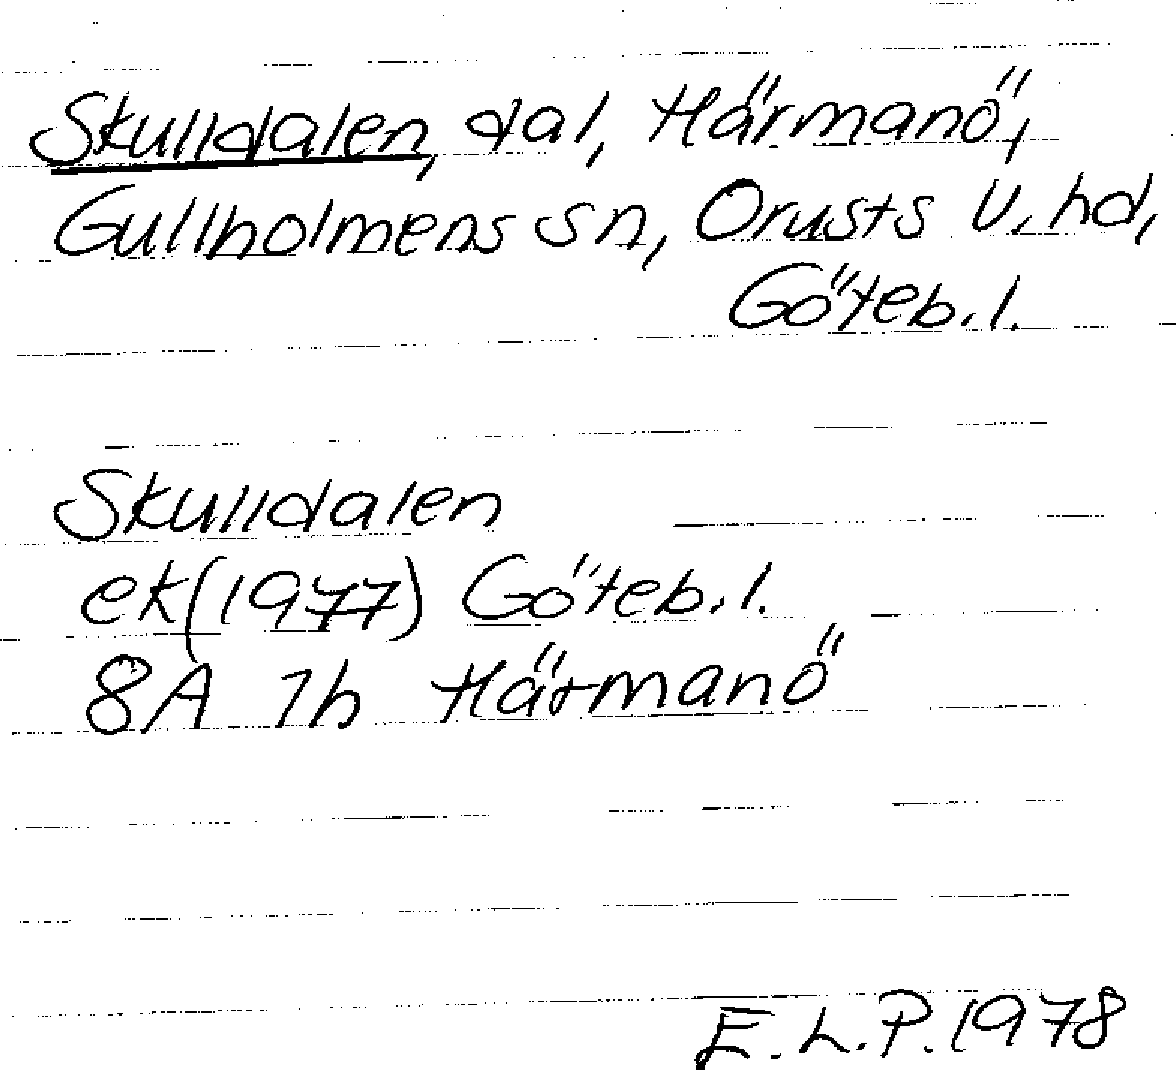 Skulldalen, dal, Härmanö,
Gullholmens sn, Orusts V. hd,
Göteb. l.
Skulldalen
ek(1977) Göteb. l.
8A 7h Härmanö
E. L. P. 1978